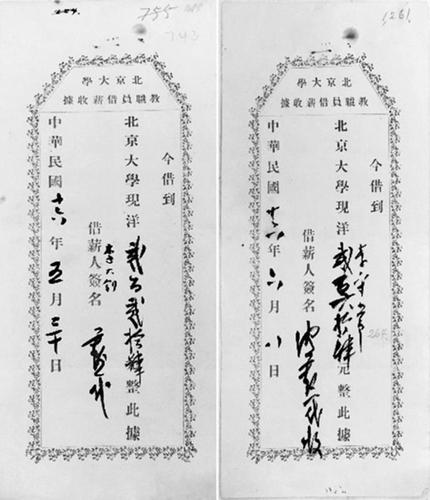 755
743
北京大學
教職員借薪收據
今借到
北京大學現洋貳百貳拾肆整此據
借薪人簽名
李大釗
中華民國十六年五月 日
1261
北京大學
教職員借薪收據
今借到
李守常
北京大學現洋貳百 拾肆元整此據
264
借薪人簽名 沈 收
中華民國十六年六月八日